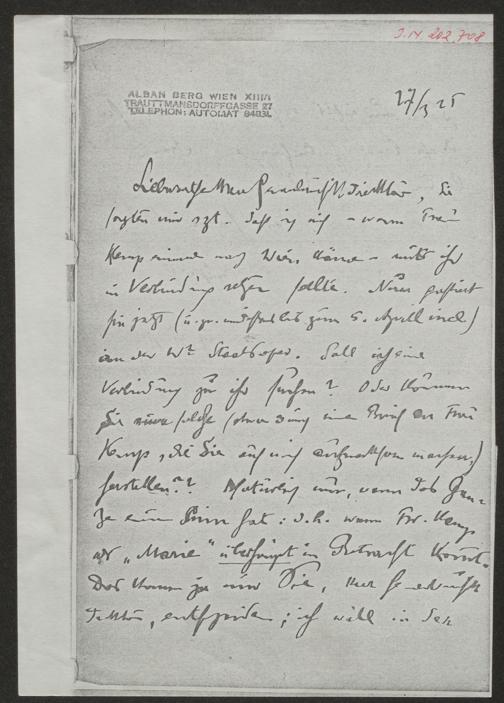 I.N. 202.708
ALBAN BERG WIEN XIII/1
TRAUTTMANSDORFFGASSE 27
TELEPHON: AUTOMAT 84831
27/3 25
Sie
sagten mir szt. daß ich mich – wenn Frau
Kemp einmal nach Wien käme – mit ihr
in Verbindung setzen sollte. Nun gastiert
sie jetzt (u. zw. bis zum 5. April incl)
an der Wr Staatsoper. Soll ich eine
Verbindung zu ihr suchen? Oder können
Sie eine solche (etwa durch einen Brief an Frau
Kemp, die Sie auf mich aufmerksam machen,)
herstellen?? Natürlich nur, wenn das Gan-
ze einen Sinn hat: d.h. wenn Fr. Kemp
als „Marie" überhaupt in Betracht kommt.
Das kann ja nur Sie, Herr General
entscheiden; ich will in der